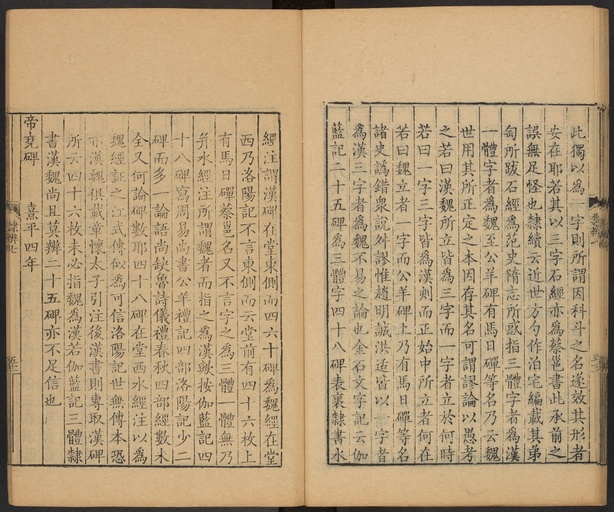 此獨以為一字則所謂因科斗之名遂效其形者
安在耶若其以三字石經亦為蔡邕書此承前之
誤無足怪也隸續云近世方勺作泊宅編載其弟
匋所跋石經為范史隋志所惑指三體字者為漢
一體字者為魏至公羊碑有馬日磾等名乃云魏
世用其所正定之本因存其名可謂謬論以愚考
之若曰漢魏所立皆為三字而一字者立於何時
若曰一字三字皆為漢刻而正始中所立者何在
若曰魏立者一字而公羊碑上乃有馬日磾等名
諸史譌錯衆說舛謬惟趙明誠洪适皆以一字者
為漢三字者為魏不易之論也金石文字記云伽
藍記二十五碑為三體字四十八碑表裏隸書水
經注謂漢碑在堂東側而四六十碑為魏經在堂
西乃洛陽記不言東側而云堂前有四十六枚上
有馬日磾蔡邕名又不言字之為三體一體無乃
并水經注所謂魏者而指之為漢歟按伽藍記四
十八碑寫周易尚書公羊禮記四部洛陽記少二
碑而多一論語尚缺魯詩儀禮春秋四部經數未
全又何論碑數耶四十八碑在堂西水經注以為
魏經証之江式傳似為可信洛陽記世無傳本恐
亦漢魏俱載章懷太子引注後漢書則專取漢碑
所云四十六枚未必指魏為漢若伽藍記三體隸
書漢魏尚且莫辨二十五碑亦不足信也
帝堯碑 熹平四年
隸辨七